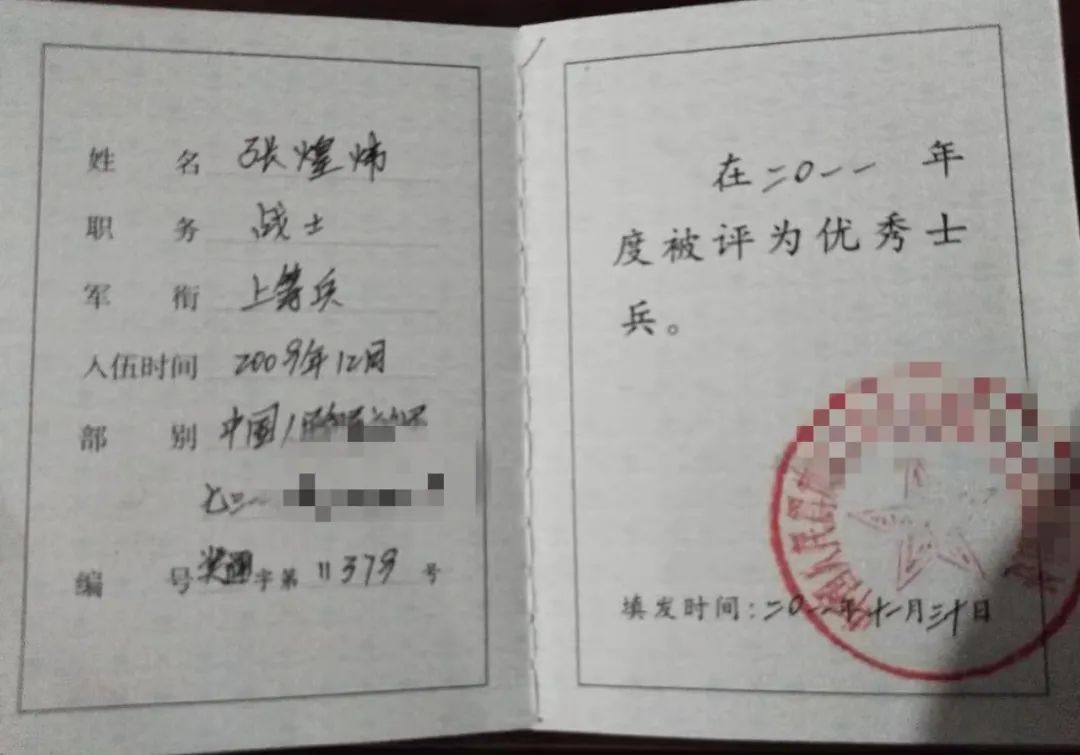 姓 名 张煌炜
职 务 战士
军 衔 上等兵
入伍时间 2009年12月
部 别 中国人民
七二一
编 号 奖通字第 11379 号
在二〇一一 年
度被评为优秀士
兵。
填发时间:二〇一一年十一月三十日
中国人民解放